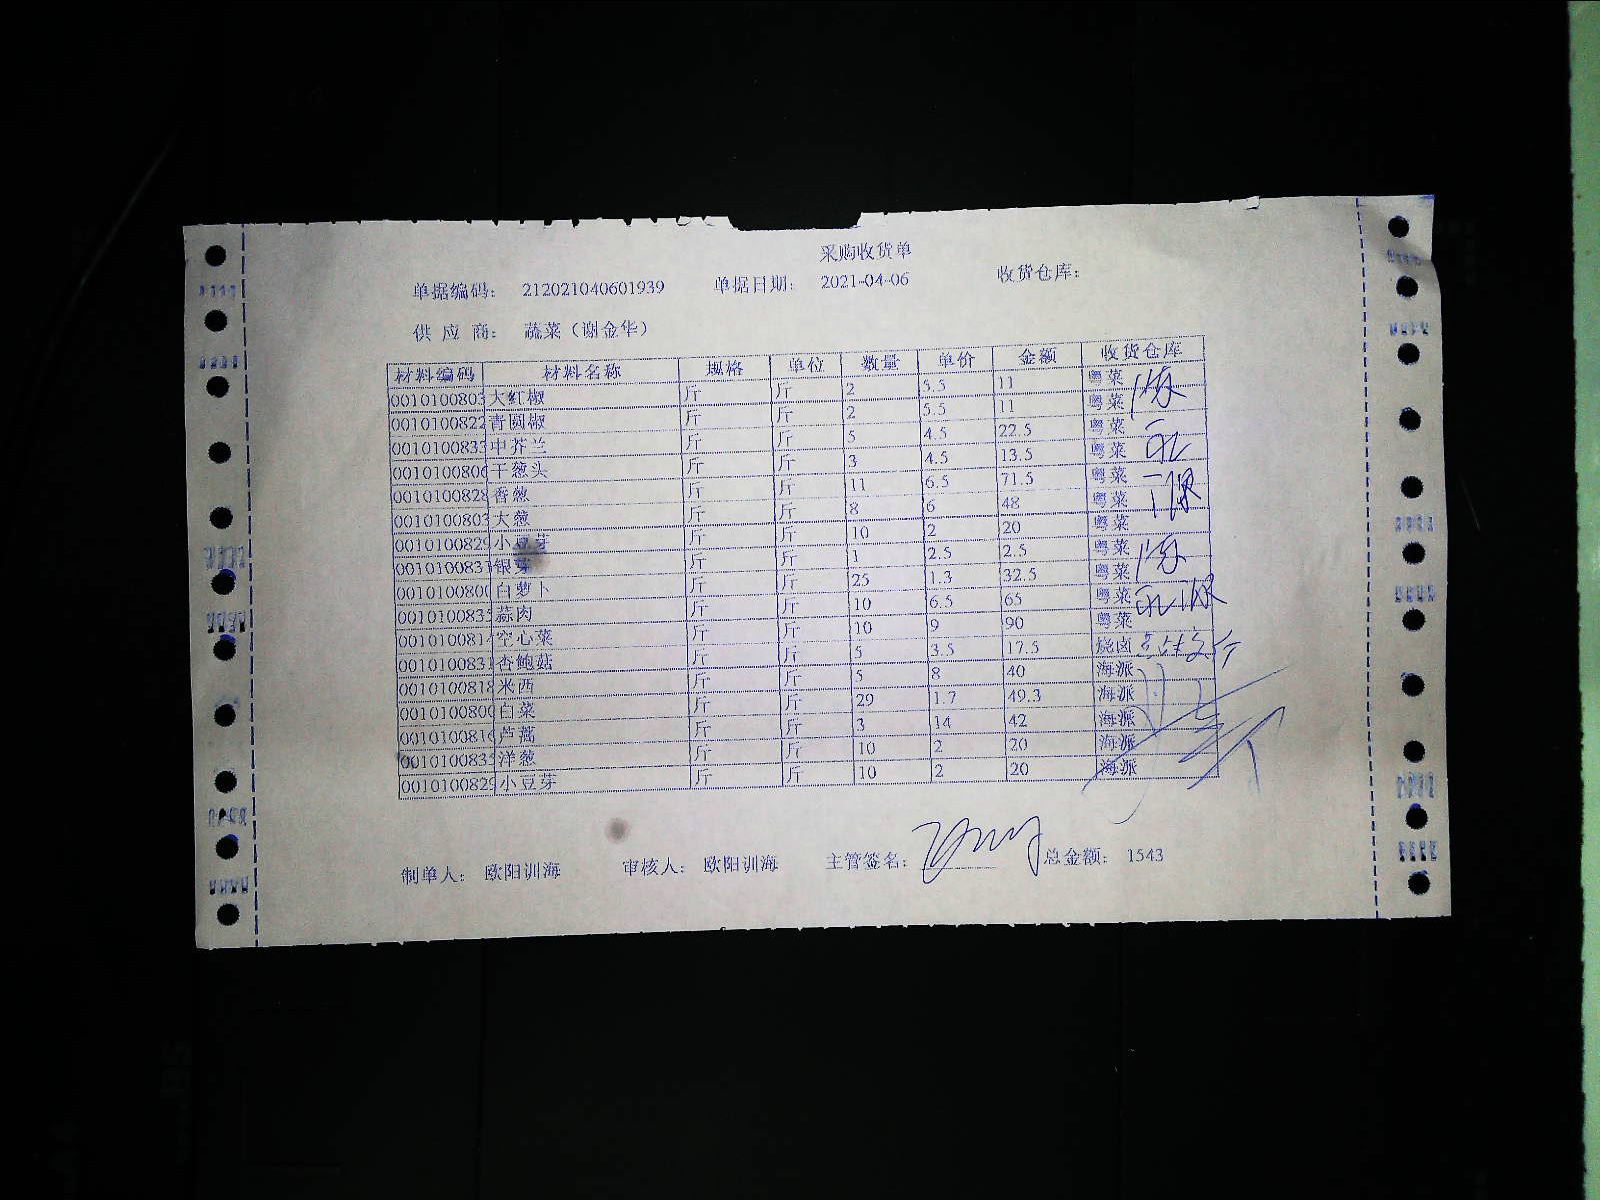 采购收货单
单据编码: 212021040601939 单据日期: 2021-04-06 收货仓库:
供 应 商: 蔬菜（谢金华）
材料编码 材料名称 规格 单位 数量 单价 金额 收货仓库
0010100803 大红椒 斤 斤 2 5.5 11 粤菜
0010100822 青圆椒 斤 斤 2 5.5 11 粤菜
0010100833 中芥兰 斤 斤 5 4.5 22.5 粤菜
0010100806 干葱头 斤 斤 3 4.5 13.5 粤菜
0010100828 香葱 斤 斤 11 6.5 71.5 粤菜
0010100803 大葱 斤 斤 8 6 48 粤菜
0010100829 小豆芽 斤 斤 10 2 20 粤菜
0010100831 银芽 斤 斤 1 2.5 2.5 粤菜
0010100800 白萝卜 斤 斤 25 1.3 32.5 粤菜
0010100835 蒜肉 斤 斤 10 6.5 65 粤菜
0010100814 空心菜 斤 斤 10 9 90 粤菜
0010100831 杏鲍菇 斤 斤 5 3.5 17.5 烧卤
0010100818 米西 斤 斤 5 8 40 海派
0010100800 白菜 斤 斤 29 1.7 49.3 海派
0010100816 芦蒿 斤 斤 3 14 42 海派
0010100835 洋葱 斤 斤 10 2 20 海派
0010100829 小豆芽 斤 斤 10 2 20 海派
制单人: 欧阳训海 审核人: 欧阳训海 主管签名: 总金额: 1543